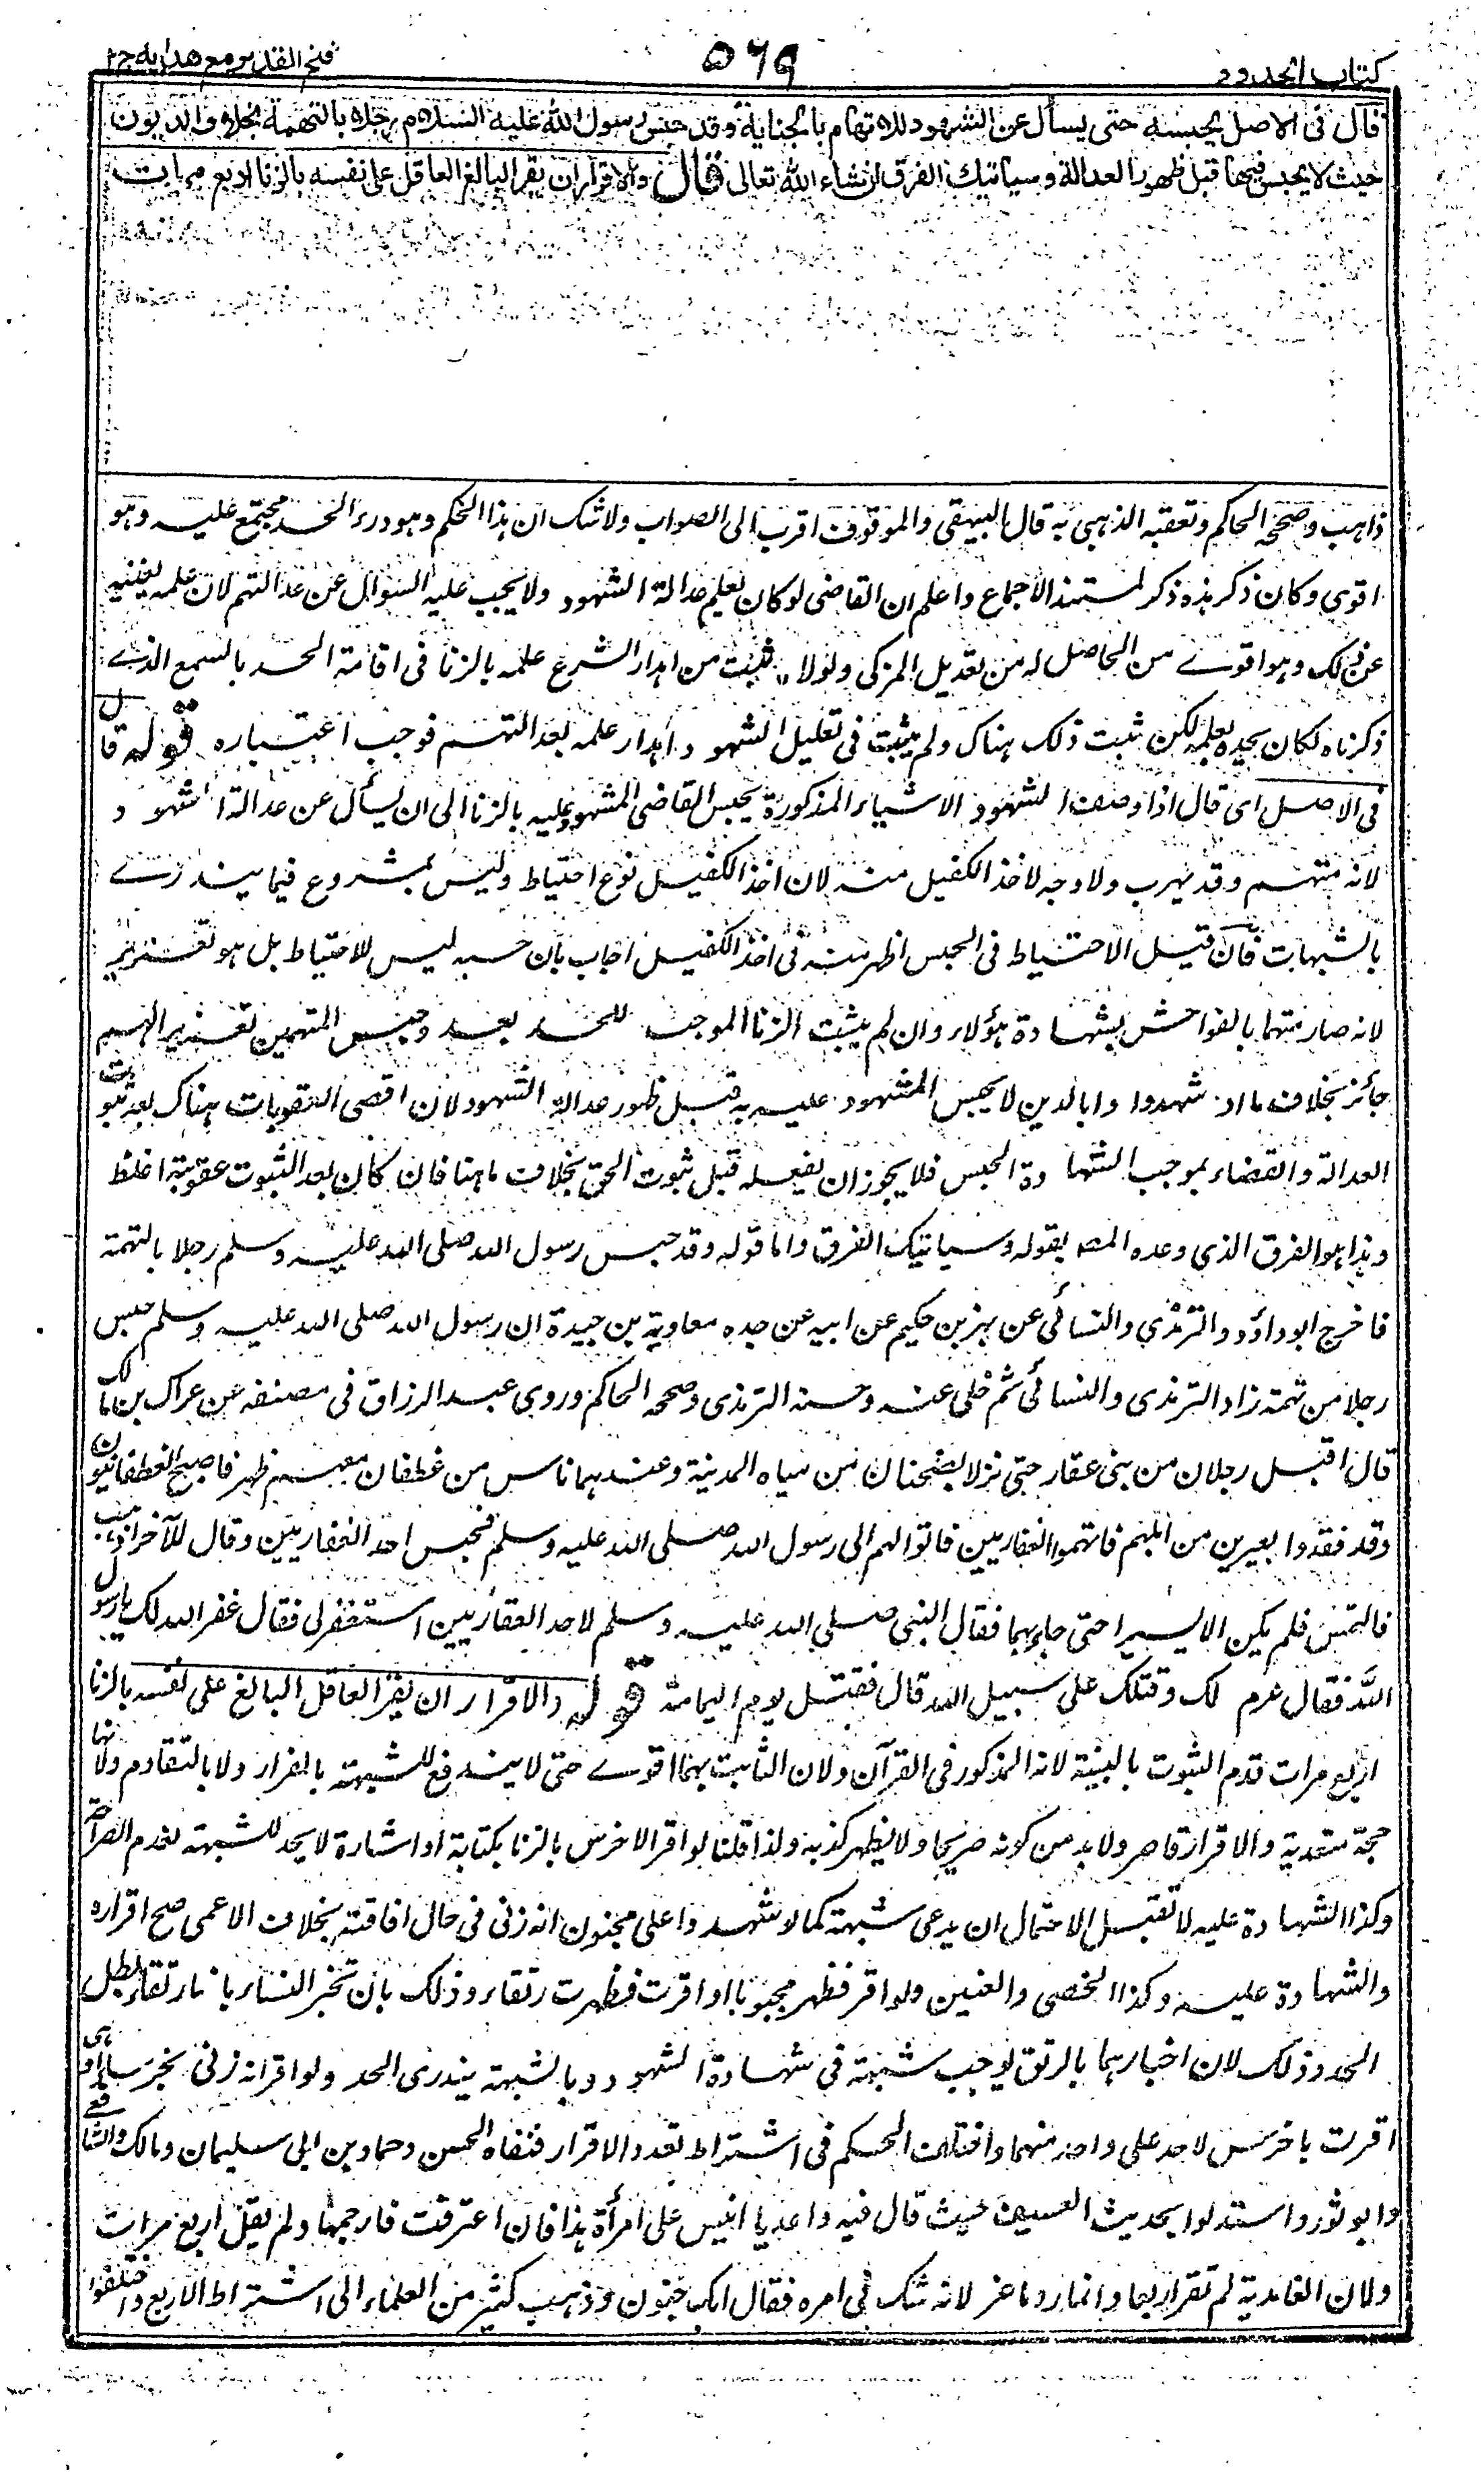 كتاب الحدود
٥٦٩
فتح القدير مع هدايه ج٢
قال في الاصل يحبسه حتى يسأل عن الشهود للاتهام بالجناية وقد حبس رسول الله عليه السلام رجلا بالتهمة بخلاف الديون
حيث لا يحبس فيها قبل ظهور العدالة وسيأتيك الفرق ان شاء الله تعالى قال والاقرار ان يقر البالغ العاقل على نفسه بالزنا اربع مرات
ذاهب وصححه الحاكم وتعقبه الذهبي به قال البيهقي والموقوف اقرب الى الصواب ولا شك ان هذا الحكم وهو درء الحد مجتمع عليه وهو
اقوى وكان ذكر هذه ذكر لمستند الاجماع واعلم ان القاضي لو كان يعلم عدالة الشهود ولا يجب عليه السؤال عن عدالتهم لان علمه يغنيه
عن ذلك وهو اقوى من الحاصل له من تعديل المزكى ولولا ثبت من اهدار الشرع علمه بالزنا في اقامة الحد بالسمع الذي
ذكرناه لكان يحده بعلمه لكن ثبت ذلك هناك ولم يثبت في تعليل الشهود اهدار علمه بعدالتهم فوجب اعتباره قوله قال
في الاصل اى قال اذا وصف الشهود الاشياء المذكورة يحبس القاضي المشهود عليه بالزنا الى ان يسأل عن عدالة الشهود
لانه متهم وقد يهرب ولا وجه لاخذ الكفيل منه لان اخذ الكفيل نوع احتياط وليس بمشروع فيما يندرئ
بالشبهات فان قيل الاحتياط في الحبس اظهر منه في اخذ الكفيل اجاب بأن حبسه ليس للاحتياط بل هو تعزير
لانه صار متهما بالفواحش بشهادة هؤلاء وان لم يثبت الزنا الموجب للحد بعد وحبس المتهمين تعزيرا لهم
جائز بخلاف ما اذ شهدوا وابالدين لا يحبس المشهود عليه به قبل ظهور عدالة الشهود لان اقصى العقوبات هناك بعد ثبوت
العدالة والقضاء بموجب الشهادة الحبس فلا يجوز ان يفعله قبل ثبوت الحق بخلاف ما هنا فان كان بعد الثبوت عقوبة اغلظ
وهذا هو الفرق الذي وعده المصـ بقوله وسيأتيك الفرق واما قوله وقد حبس رسول الله صلى الله عليه وسلم رجلا بالتهمة
فاخرج ابو داؤد والترمذي والنسائي عن بهز بن حكيم عن ابيه عن جده معاوية بن حيدة ان رسول الله صلى الله عليه وسلم حبس
رجلا من تهمة زاد الترمذي والنسائي ثم خلى عنه وحسنه الترمذي وصححه الحاكم وروى عبد الرزاق في مصنفه عن عراك بن مالك
قال اقبل رجلان من بني غفار حتى نزلا بضجنان من مياه المدينة وعندهما ناس من غطفان معهم ظهر فاصبح الغطفانيون
وقد فقدوا بعيرين من ابلهم فاتهموا الغفاريين فاتوا لهم الى رسول الله صلى الله عليه وسلم فحبس احد الغفاريين وقال للآخر اذهب
فالتمس فلم يكن الا يسيرا حتى جاء بهما فقال النبي صلى الله عليه وسلم لاحد الغفاريين استغفر لي فقال غفر الله لك يا رسول
الله فقال عرم لك وقتلك على سبيل الله قال فقتل يوم اليمامة قوله والاقرار ان يقر العاقل البالغ على نفسه بالزنا
اربع مرات قدم الثبوت بالبينة لانه المذكور في القرآن ولان الثابت بها اقوى حتى لا يندفع للشبهة بالفرار ولا بالتقادم ولانها
حجة متعدية والاقرار قاصر ولا بد من كونه صريحا ولا يظهر كذبه ولذا قلنا لو اقر الاخرس بالزنا بكتابة او اشارة لا يحد للشبهة لعدم الصراحة
وكذا الشهادة عليه لا تقبل لاحتمال ان يدعى شبهة كما لو شهدوا على مجنون انه زنى في حال افاقته بخلاف الاعمى صح اقراره
والشهادة عليه وكذا الخصي والعنين ولو اقر فظهر مجبوبا او اقرت فظهرت رتقاء وذلك بان تخبر النساء بانها رتقاء بطل
الحد وذلك لان اخبارهما بالرتق يوجب شبهة في شهادة الشهود وبالشبهة يندرئ الحد ولو اقر انه زنى بخرساء او هي
اقرت باخرس لا حد على واحد منهما واختلف الحكم في اشتراط تعدد الاقرار فنفاه الحسن وحماد بن ابي سليمان ومالك والشافعي
وابو ثور واستدلوا بحديث العسيف حيث قال فيه واغد يا انيس على امرأة هذا فان اعترفت فارجمها ولم يقل اربع مرات
ولان الغامدية لم تقر اربعا وانما رد ماعز لانه شك في امره فقال ابك جنون وذهب كثير من العلماء الى اشتراط الاربع واختلفوا